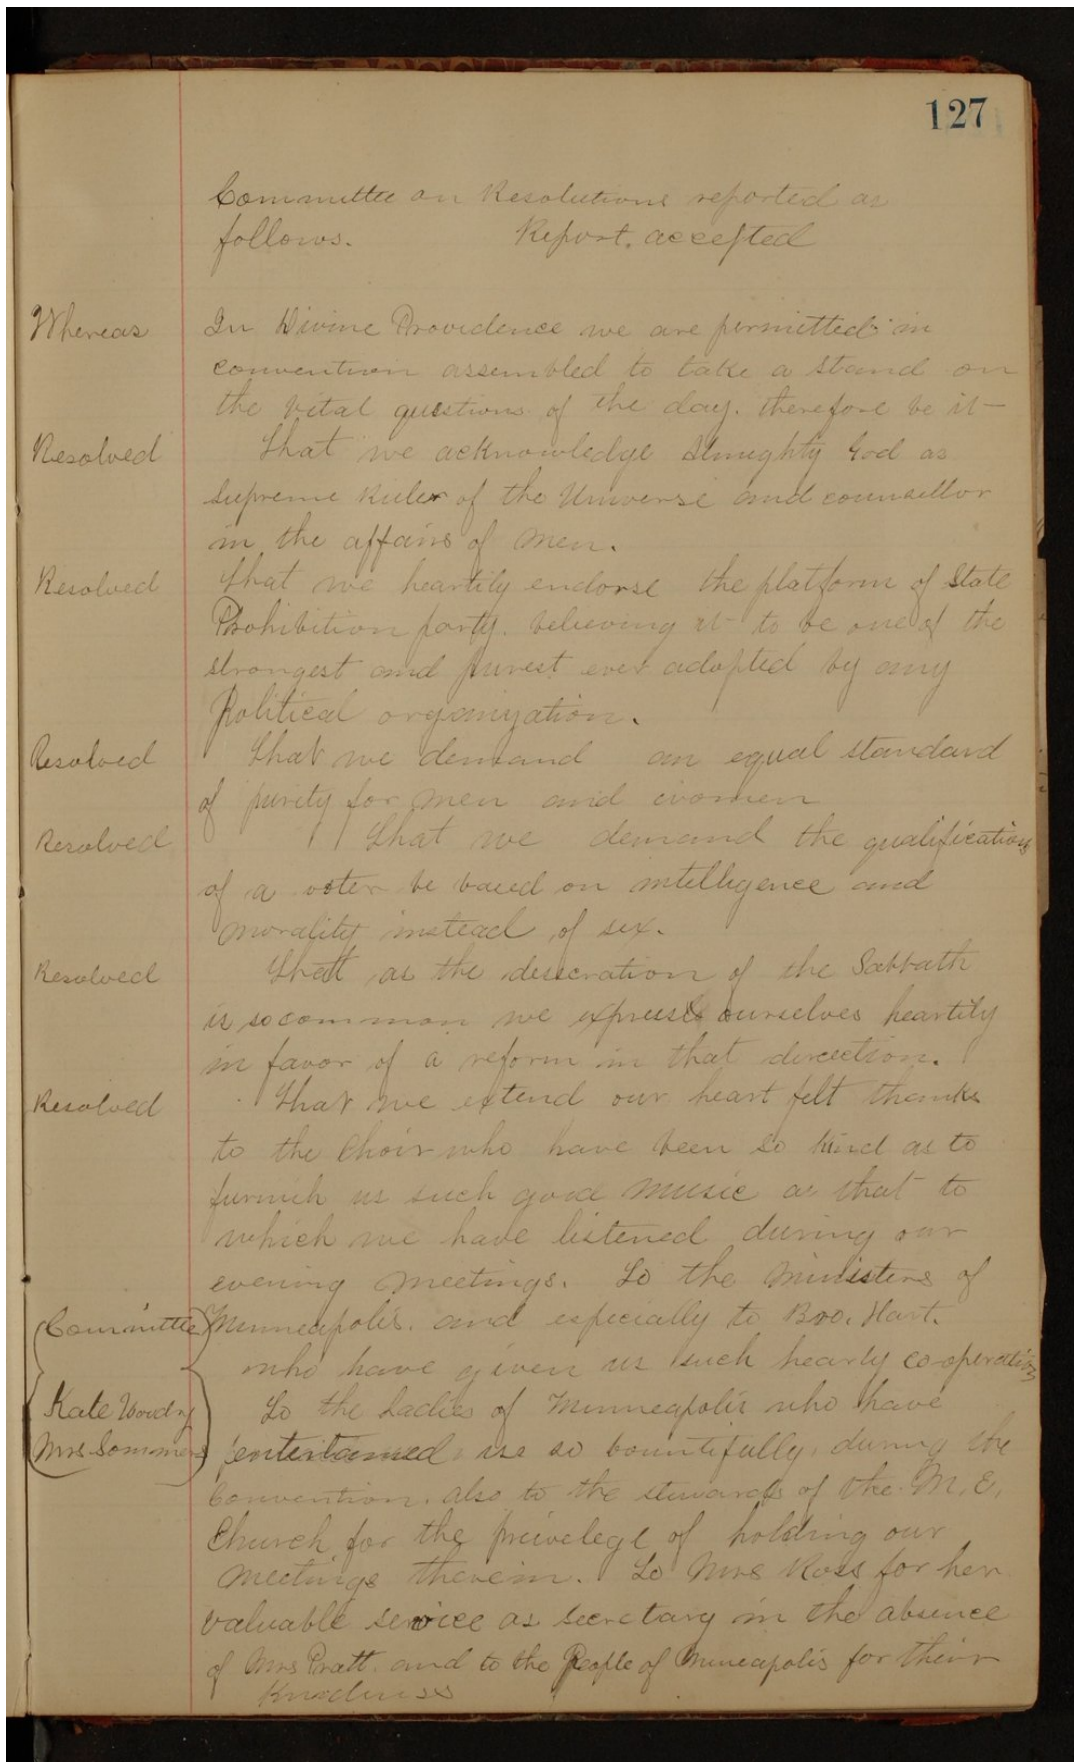 127
Committee on Resolutions reported as
follows. Report. accepted
Whereas In Divine Providence we are permitted in
convention assembled to take a stand on
the vital questions of the day. therefore be it—
Resolved that we acknowledge Almighty God as
Supreme Ruler of the Universe and counsellor
in the affairs of men.
Resolved that we heartily endorse the platform of State
Prohibition party. believing it to be one of the
strongest and purest ever adopted by any
Political organization.
Resolved that we demand an equal standard
of purity for men and women
Resolved that we demand the qualifications
of a voter be based on intelligence and
morality instead of sex.
Resolved that as the desecration of the Sabbath
is so common we express ourselves heartily
in favor of a reform in that direction.
Resolved that we extend our heart felt thanks
to the Choir who have been so kind as to
furnish us such good music as that to
which we have listened during our
evening meetings. To the Ministers of
Committee Minneapolis. and especially to Bro. Hart.
who have given us such hearty co-operation
Kate Woody To the Ladies of Minneapolis who have
Mrs Sommers entertained us so bountifully, during the
Convention. also to the stewards of the M. E.
Church for the privelege of holding our
meetings therein. To Mrs Ross for her
valuable service as secretary in the absence
of Mrs Pratt. and to the People of Minneapolis for their
Kindness